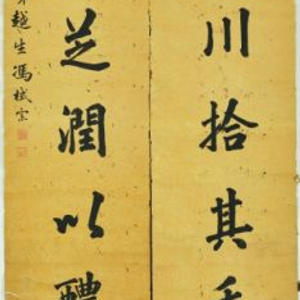 川拾其
芝潤以醴
越生馮栻宗